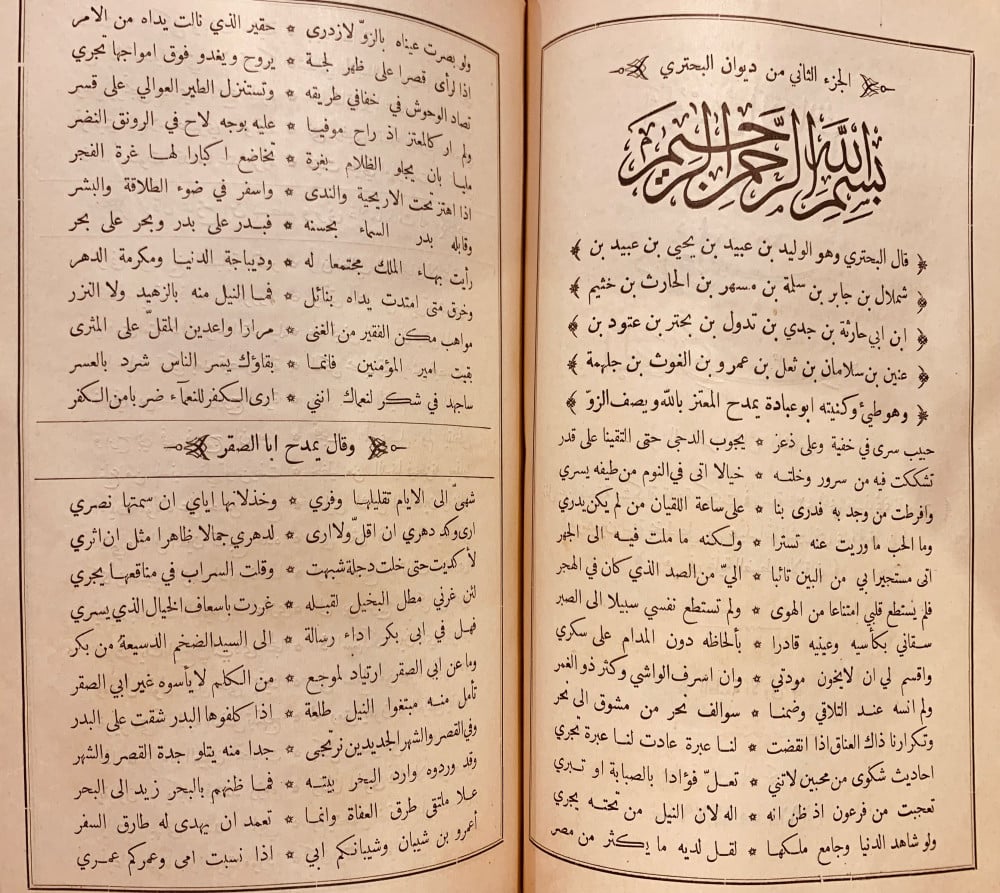 الجزء الثاني من ديوان البحتري
بسم الله الرحمن الرحيم
﴿ قال البحتري وهو الوليد بن عبيد بن يحيى بن عبيد بن ﴾
﴿ شملال بن جابر بن سلمة بن مسهر بن الحارث بن خثيم ﴾
﴿ ابن ابي حارثة بن جدي بن تدول بن بحتر بن عتود بن ﴾
﴿ عنين بن سلامان بن ثعل بن عمرو بن الغوث بن جلهمة ﴾
﴿ وهو طيئ وكنيته ابو عبادة يمدح المعتز بالله ويصف الزوّ ﴾
حبيب سرى في خفية وعلى ذعر * يجوب الدجى حتى التقينا على قدر
تشككت فيه من سرور وخلته * خيالا اتى في النوم من طيفه يسري
وافرطت من وجد به فدرى بنا * على ساعة اللقيان من لم يكن يدري
وما الحب ما وريت عنه تسترا * ولكنه ما ملت فيه الى الجهر
اتى مستجيرا بي من البين تائبا * اليّ من الصد الذي كان في الهجر
فلم يستطع قلبي امتناعا من الهوى * ولم تستطع نفسي سبيلا الى الصبر
سقاني بكأسيه وعينيه قادرا * بألحاظه دون المدام على سكري
واقسم لي ان لايخون مودتي * وان اسرف الواشي وكثر ذو الغمر
ولم انسه عند التلاقي وضمنا * سوالف نحر من مشوق الى نحر
وتكرارنا ذاك العناق اذا انقضت * لنا عبرة عادت لنا عبرة تجري
احاديث شكوى من محبين لاتني * تعلّ فؤادا بالصبابة او تبري
تعجبت من فرعون اذ ظن انه * اله لان النيل من تحته يجري
ولو شاهد الدنيا وجامع ملكها * لقل لديه ما يكثر من مصر
ولو بصرت عيناه بالزوّ لازدرى * حقير الذي نالت يداه من الامر
اذا لرأى قصرا على ظهر لجة * يروح ويغدو فوق امواجها تجري
تصاد الوحوش في خفافي طريقه * وتستنزل الطير العوالي على قسر
ولم ار كالمعتز اذ راح موفيا * عليه بوجه لاح في الرونق النضر
مليا بان يجلو الظلام بغرة * تخاضع اكبارا لها غرة الفجر
اذا اهتز تحت الاريحية والندى * واسفر في ضوء الطلاقة والبشر
وقابله بدر السماء بحسنه * فبدر على بدر وبحر على بحر
رأيت بهاء الملك مجتمعا له * وديباجة الدنيا ومكرمة الدهر
وخرق متى امتدت يداه بنائل * فما النيل منه بالزهيد ولا النزر
مواهب مكن الفقير من الغنى * مرارا واعدين المقلّ على المثرى
بقيت امير المؤمنين فانما * بقاؤك يسر الناس شرد بالعسر
ساجهد في شكر لنعماك انني * ارى الكفر للنعمآء ضربا من الكفر
﴿ وقال يمدح ابا الصقر ﴾
شهيّ الى الايام تقليلها وفري * وخذلانها اياي ان سمتها نصري
ارى وكد دهري ان اقلّ ولا ارى * لدهري جمالا ظاهرا مثل ان اثري
لأكديت حتى خلت دجلة شبهت * وقلت السراب في مناقعها يجري
لئن غرني مطل البخيل لقبله * غررت باسعاف الخيال الذي يسري
فهل في ابى بكر اداء رسالة * الى السيد الضخم الدسيعة من بكر
وما عن ابي الصقر ارتياد لموجع * من الكلم لا يأسوه غير ابي الصقر
تأمل منه مبتغوا النيل طلعة * اذا كلفوها البدر شقت على البدر
وفي القصر والشهر الجديدين نرتجى * جدا منه يتلو جدة القصر والشهر
وقد وردوه وارد البحر بيته * فما ظنهم بالبحر زيد الى البحر
علا ملتقى طرق العفاة وانما * تعمد ان يهدى له طارق السفر
أعمرو بن شيبان وشيبانكم ابي * اذا نسبت امى وعمركم عمري